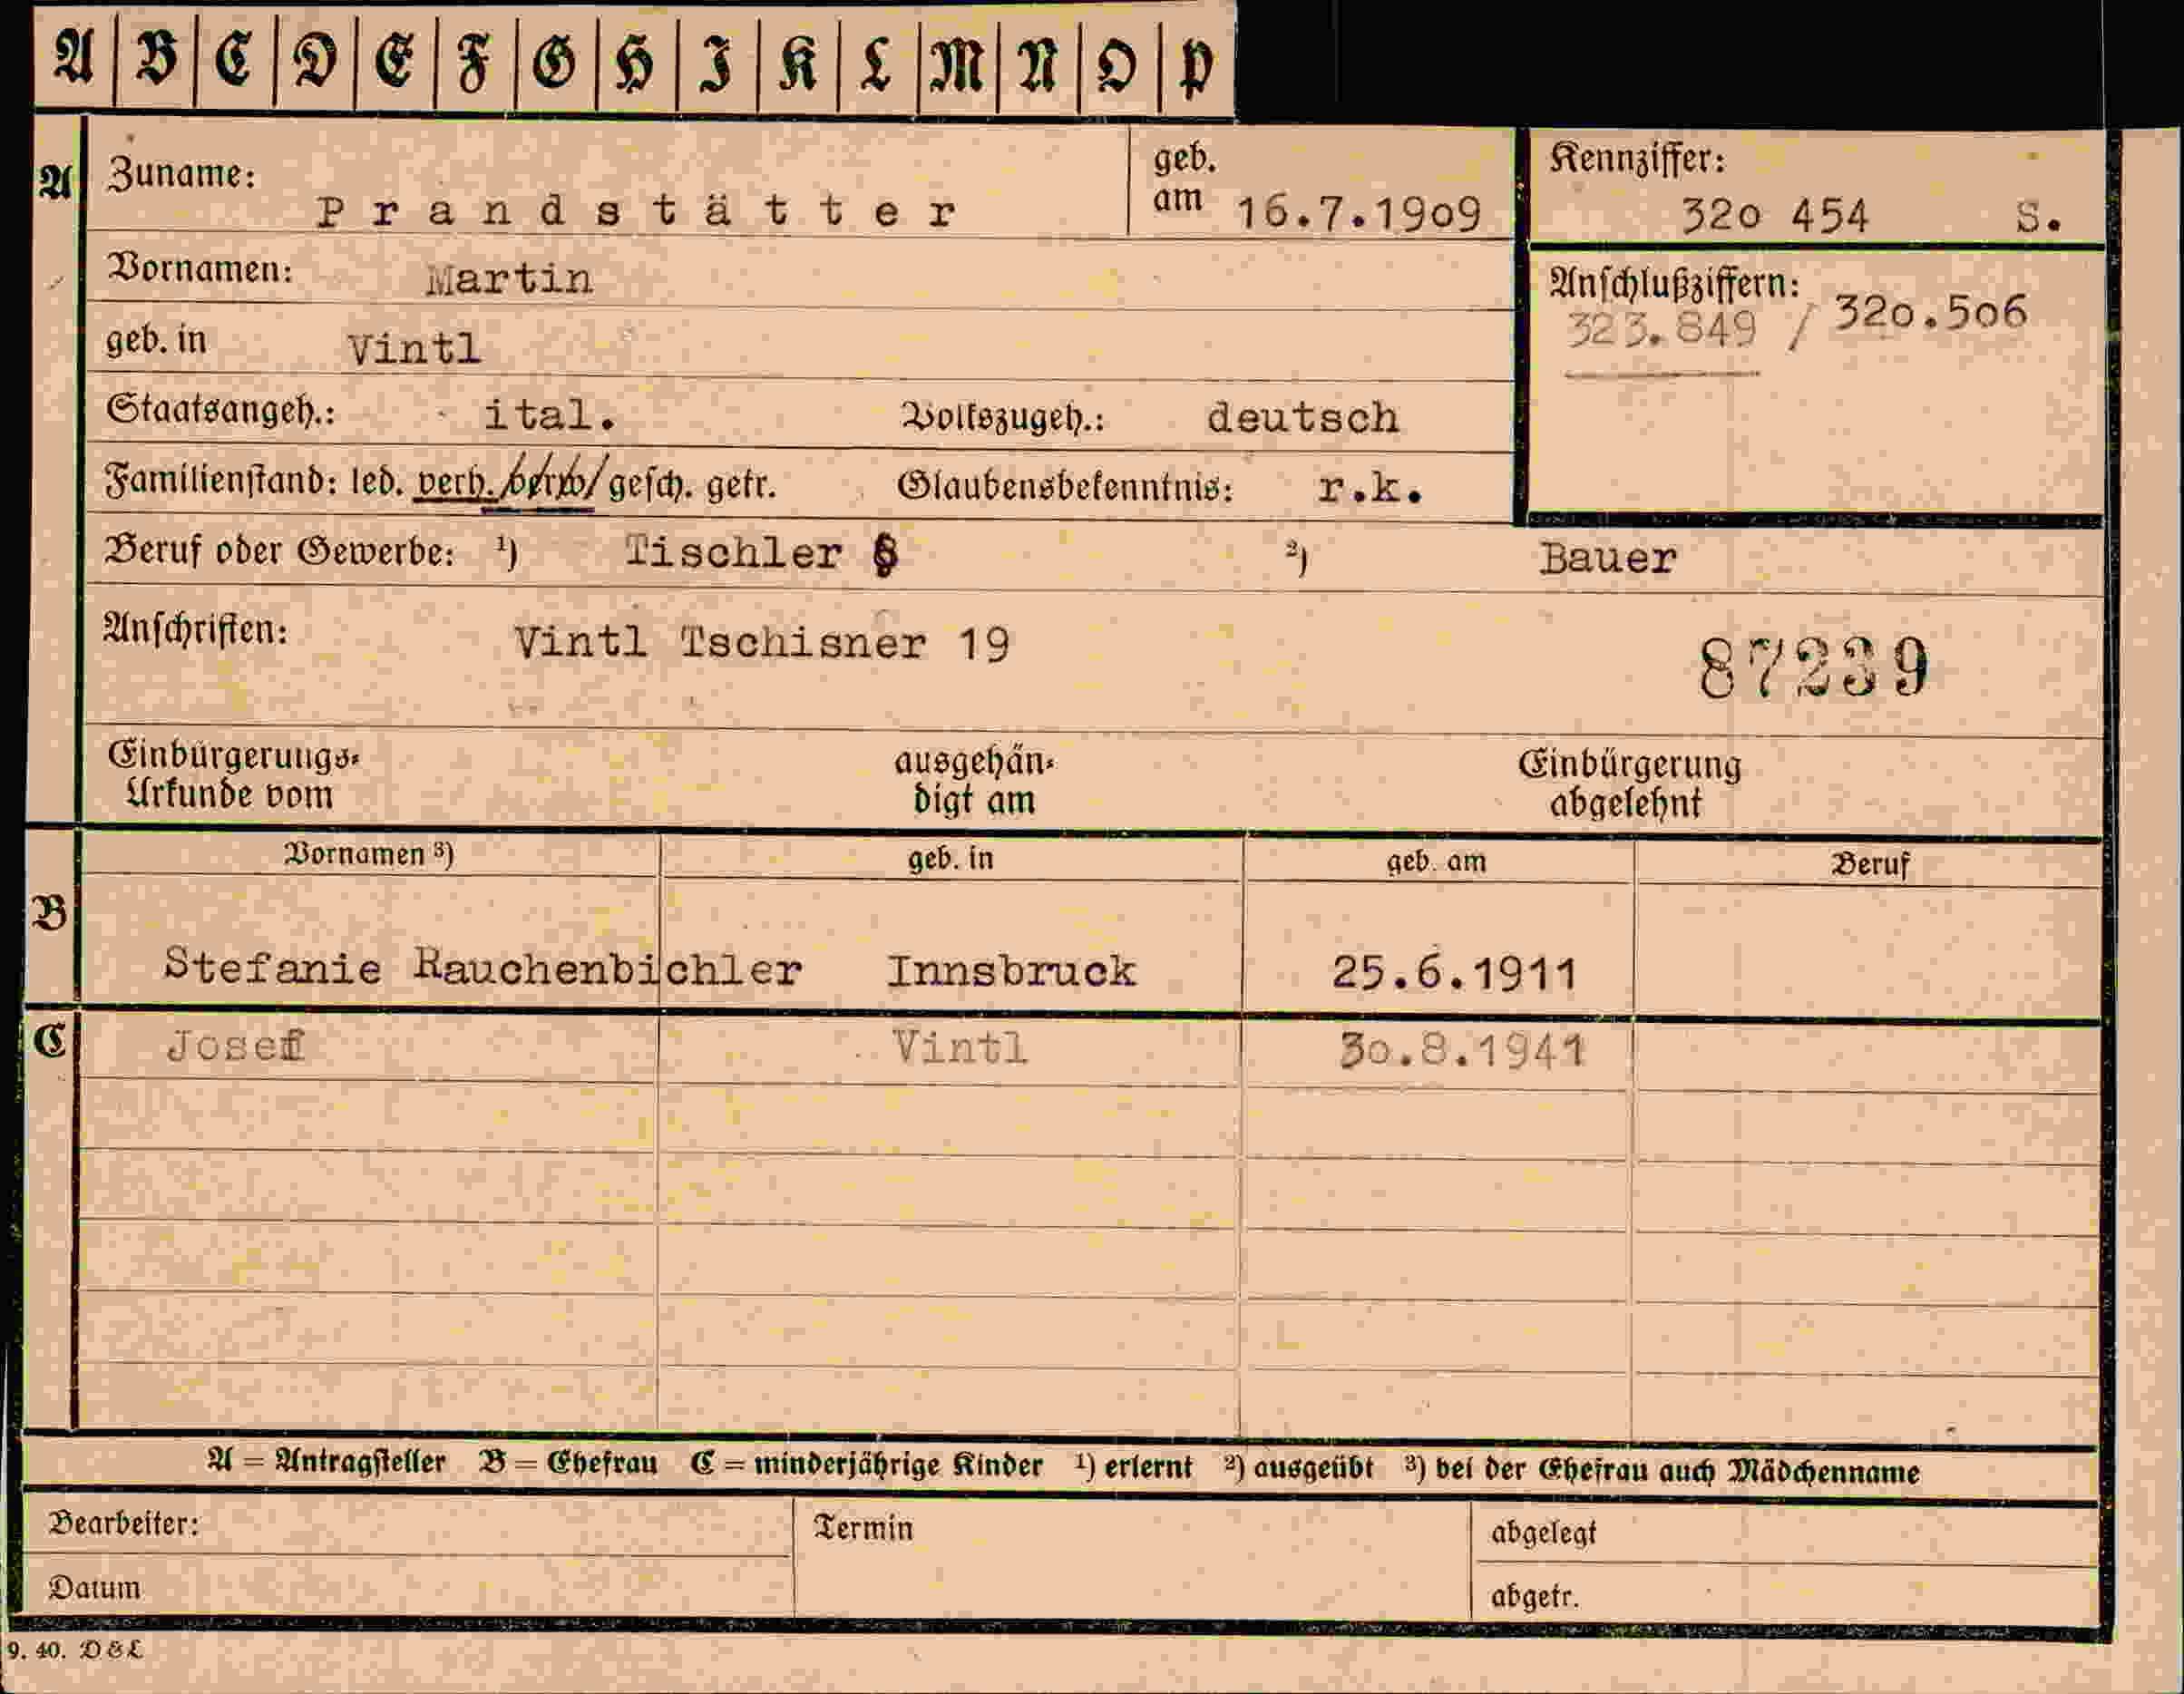 A B C D E F G H I K L M N O P
A Zuname: Prandstätter geb. am 16.7.1909 Kennziffer: 320 454 S.
Vornamen: Martin
Anschlußziffern: 323.849 / 320.506
geb. in Vintl
Staatsangeh.: ital. Volkszugeh.: deutsch
Familienstand: led. verh. verw. gesch. getr. Glaubensbekenntnis: r.k.
Beruf oder Gewerbe: ¹) Tischler § ²) Bauer
Anschriften: Vintl Tschisner 19 87239
Einbürgerungs-
Urkunde vom
ausgehän-
digt am
Einbürgerung
abgelehnt
Vornamen ³) geb. in geb. am Beruf
B Stefanie Rauchenbichler Innsbruck 25.6.1911
C Josef Vintl 30.8.1941
A = Antragsteller B = Ehefrau C = minderjährige Kinder ¹) erlernt ²) ausgeübt ³) bei der Ehefrau auch Mädchenname
Bearbeiter: Termin abgelegt
Datum abgetr.
9. 40. D & L